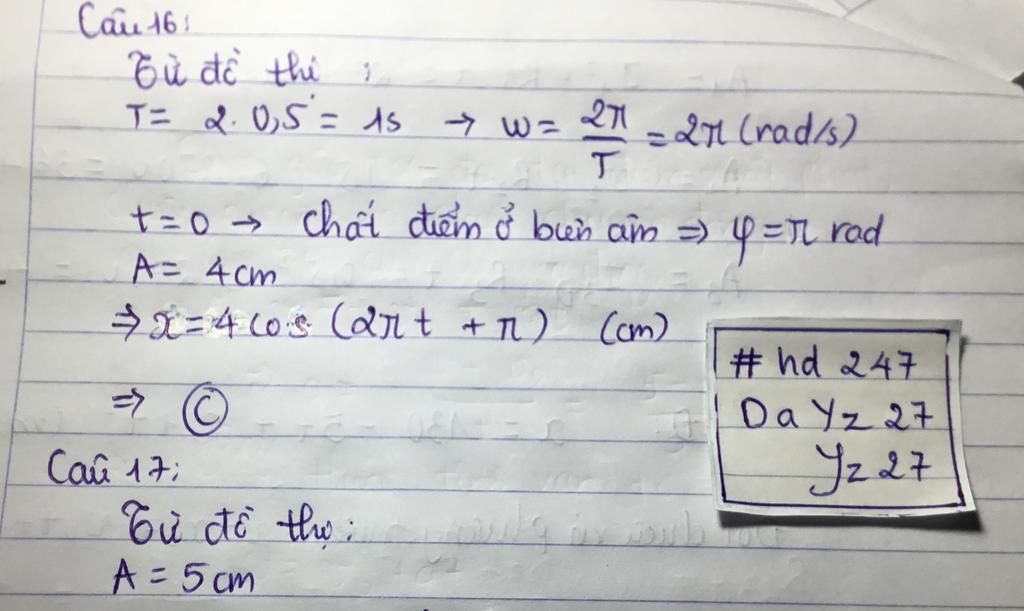 Câu 16:
Từ đồ thị :
T = 2. 0,5 = 1s → w = 2π/T = 2π (rad/s)
t = 0 → chất điểm ở biên âm => φ = π rad
A = 4cm
=> x = 4 cos (2πt + π) (cm)
=> Ⓒ
# hd 247
Da Yz 27
Yz 27
Câu 17:
Từ đồ thị :
A = 5cm